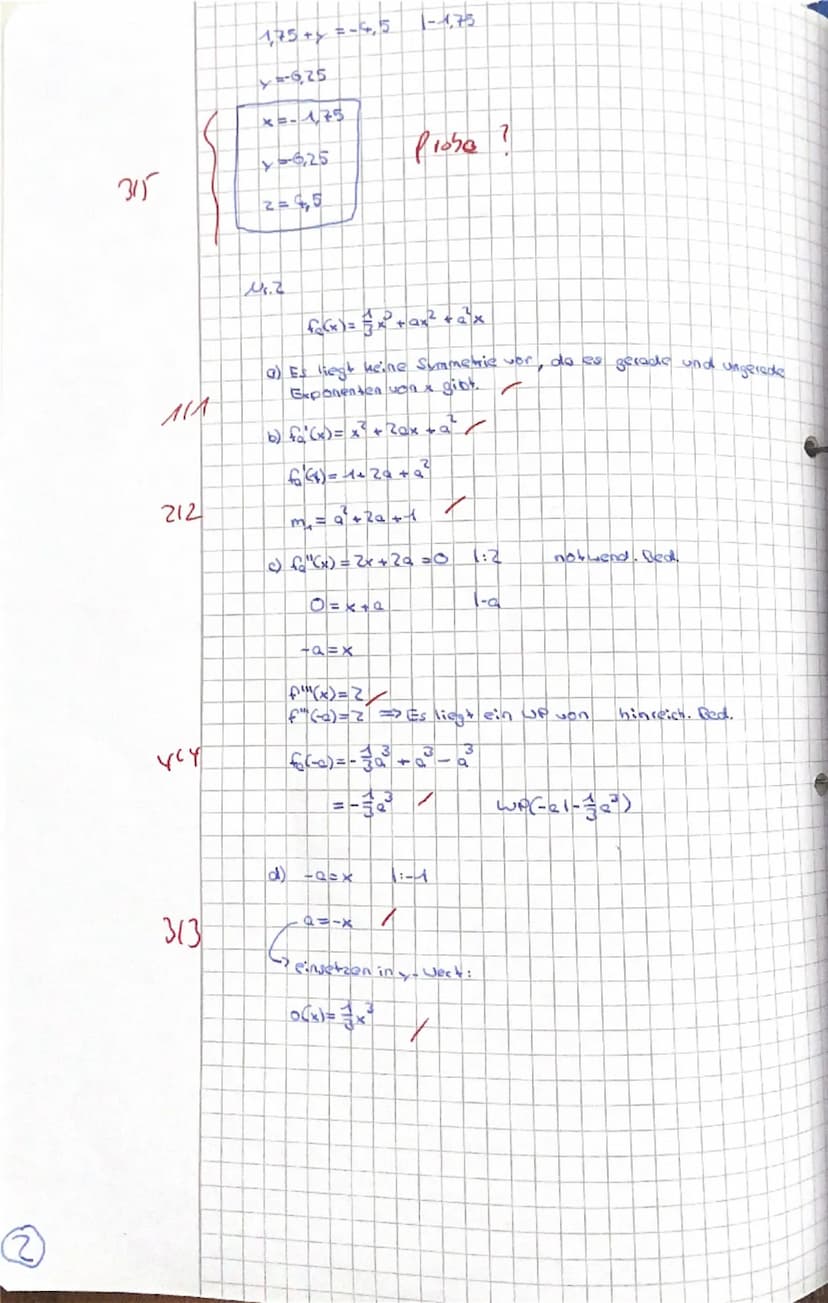 1,75 + y = -4,5 |-1,75
y = -6,25
x = -1,75
y = -6,25
z = 4,5
Probe ?
3/5
Nr. 2
fa(x) = 1/3 x³ + ax² + a²x
a) Es liegt keine Symmetrie vor, da es gerade und ungerade
Exponenten von x gibt.
1/1
b) fa'(x) = x² + 2ax + a²
fa'(1) = 1 + 2a + a²
2/2
m₁ = a² + 2a + 1
c) fa''(x) = 2x + 2a = 0 |:2 notwend. Bed.
0 = x + a |-a
-a = x
f'''(x) = 2
f'''(-a) = 2 => Es liegt ein WP vor hinreich. Bed.
4/4
fa(-a) = -1/3 a³ + a³ - a³
= -1/3 a³ WP(-a|-1/3 a³)
d) -a = x |:-1
3/3
a = -x
einsetzen in y-Wert:
o(x) = 1/3 x³
2